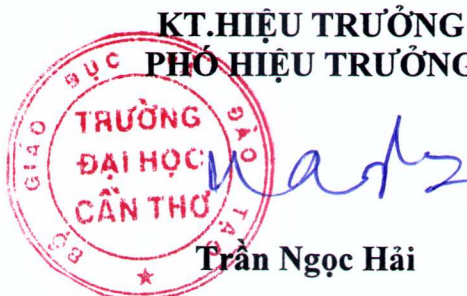 KT.HIỆU TRƯỞNG
PHÓ HIỆU TRƯỞNG
BỘ GIÁO DỤC VÀ ĐÀO TẠO
TRƯỜNG
ĐẠI HỌC
CẦN THƠ
Trần Ngọc Hải